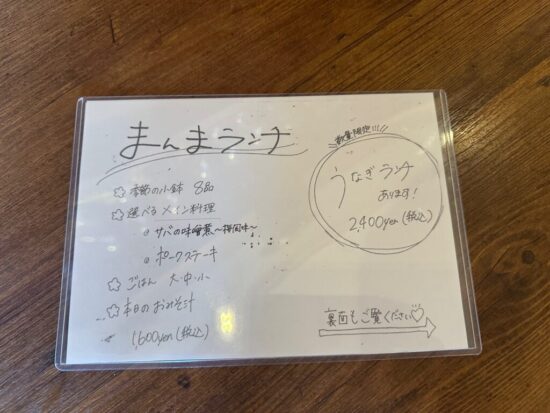 まんまランチ
☆ 季節の小鉢 8品
☆ 選べるメイン料理
サバの味噌煮
ポークステーキ
☆ ごはん 大・中・小
☆ 本日のおみそ汁
1,600yen(税込)
数量限定!!!
うなぎランチ
あります!
2,400yen(税込)
裏面もご覧ください♡